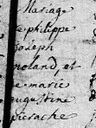 Mariage
de philippe
joseph
noland et
de marie
augustine
pierache